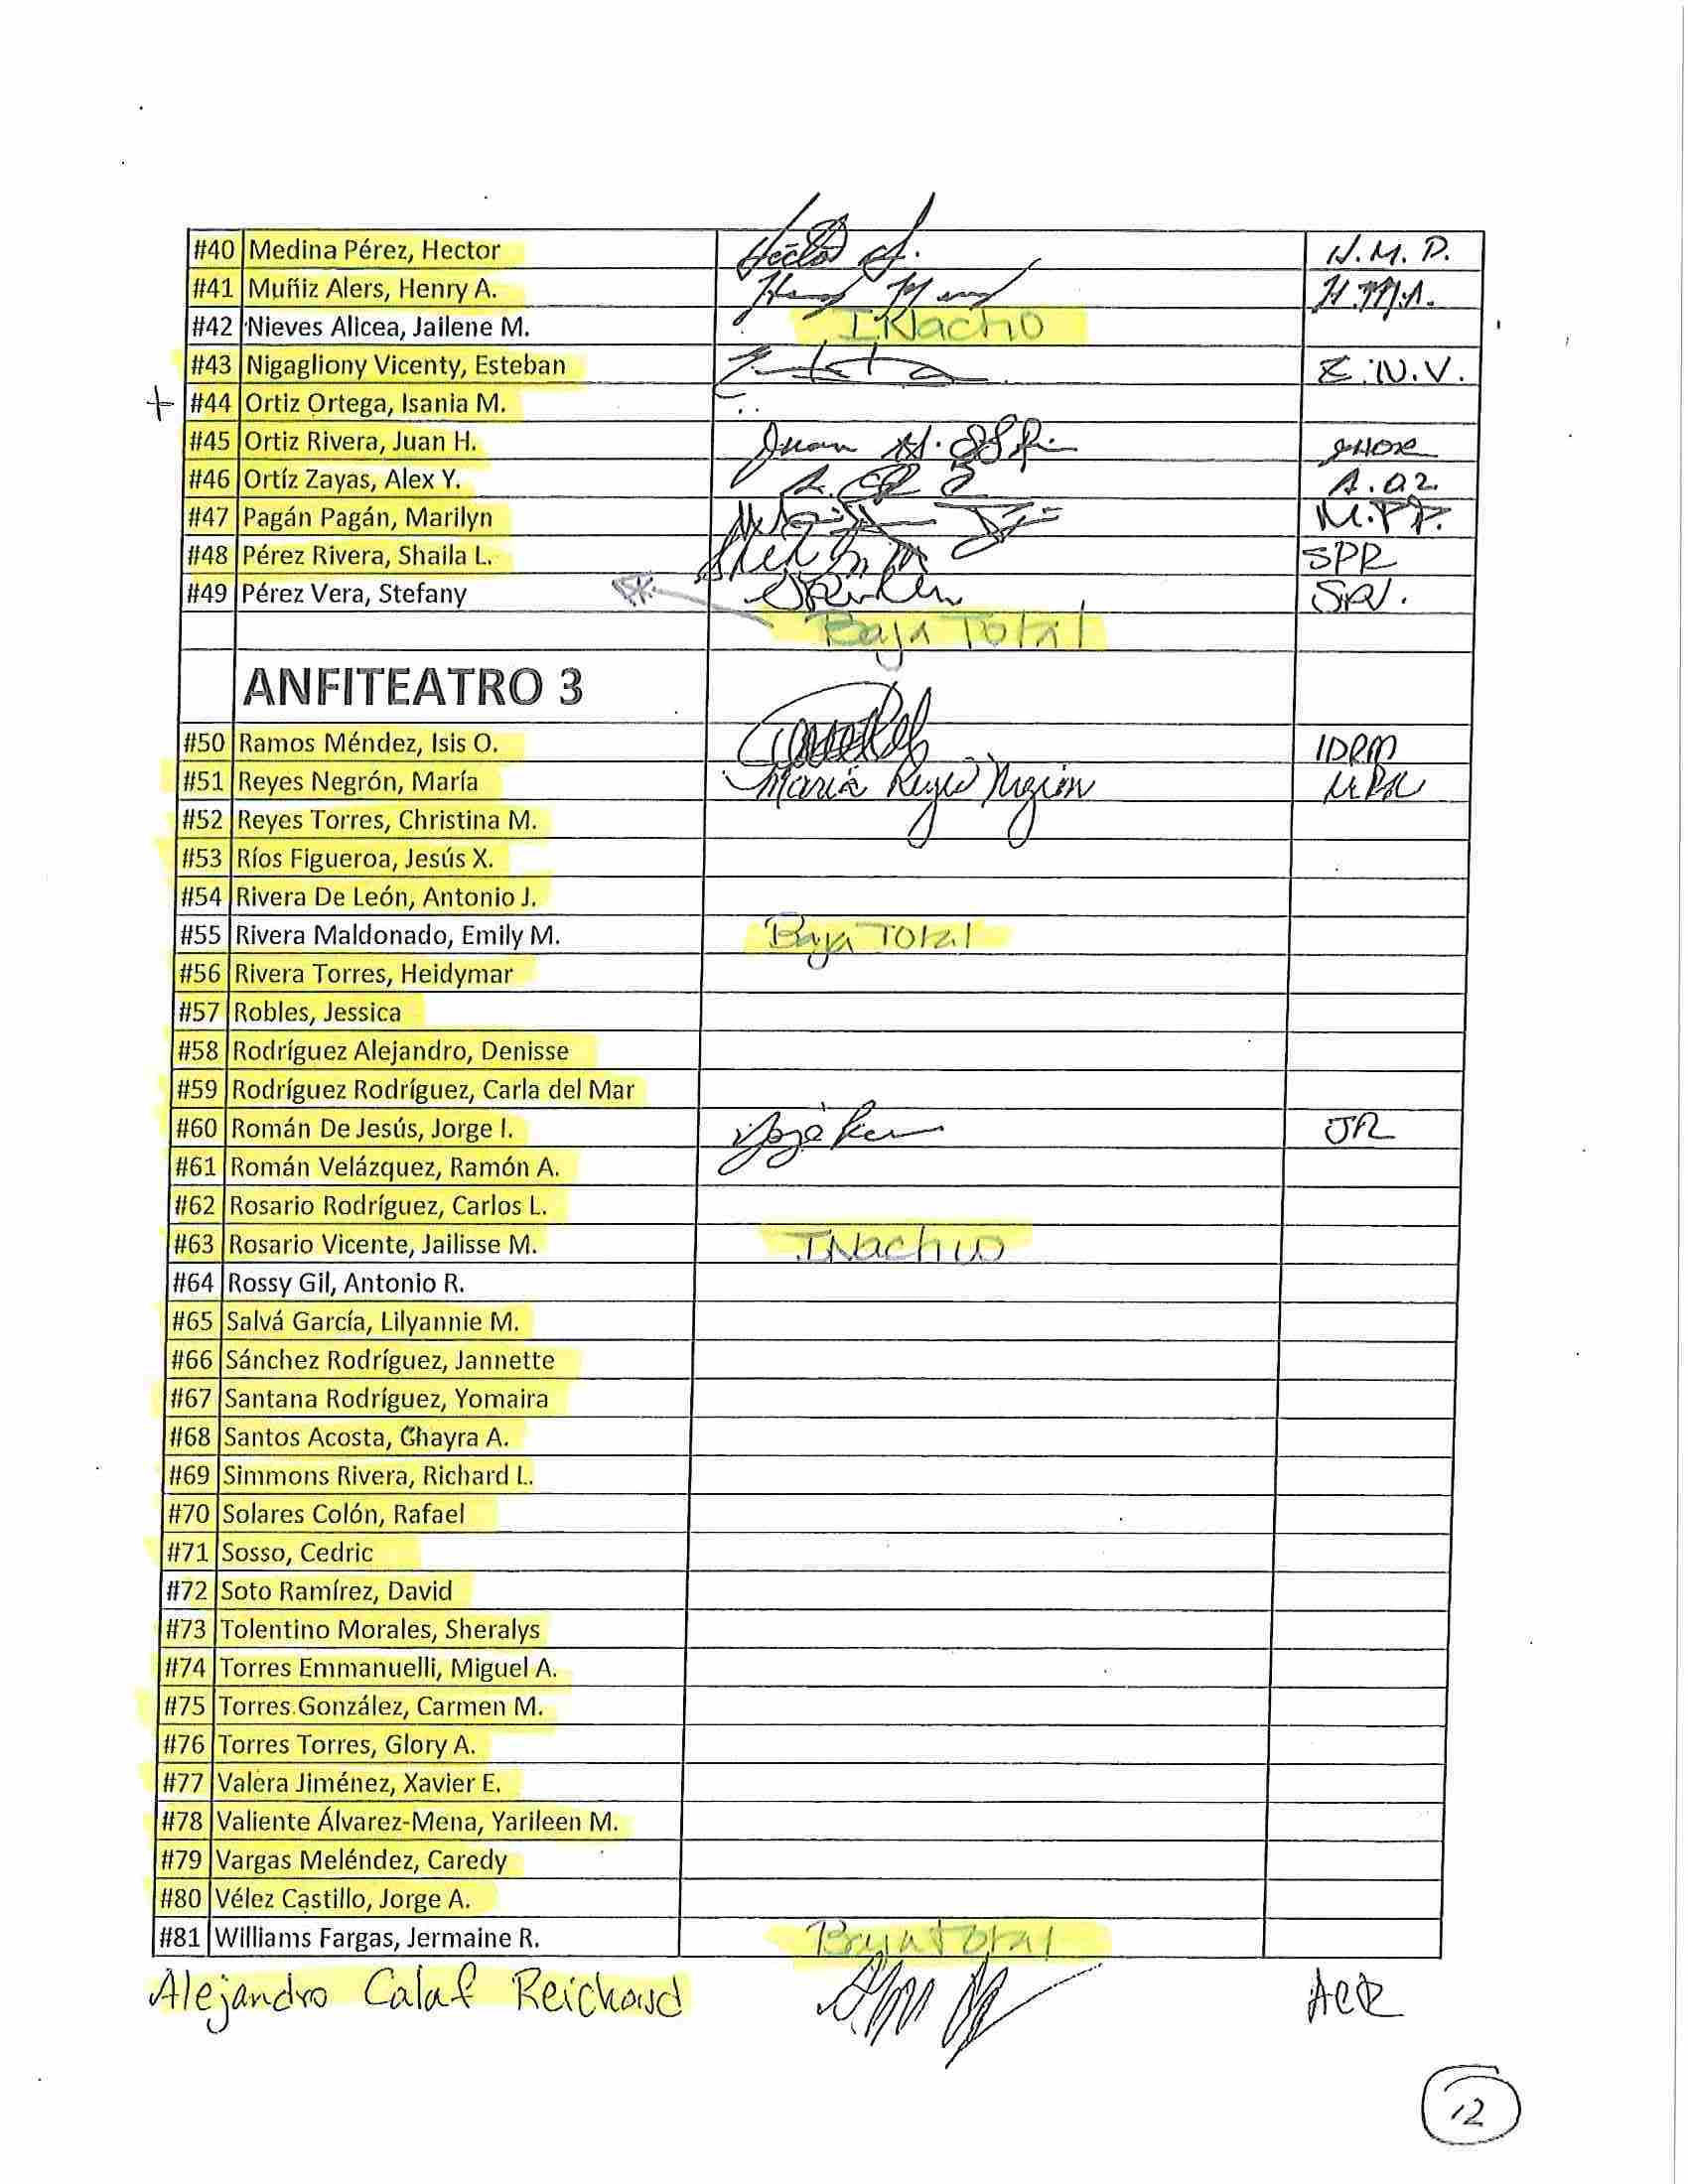 #40 Medina Pérez, Hector H.M.P.
#41 Muñiz Alers, Henry A. H.M.A.
#42 Nieves Alicea, Jailene M. INactiO
#43 Nigagliony Vicenty, Esteban E.N.V.
+ #44 Ortiz Ortega, Isania M.
#45 Ortiz Rivera, Juan H. JHOR
#46 Ortíz Zayas, Alex Y. A.OZ.
#47 Pagán Pagán, Marilyn M.P.P.
#48 Pérez Rivera, Shaila L. SPR
#49 Pérez Vera, Stefany
Baja Total
ANFITEATRO 3
#50 Ramos Méndez, Isis O. IDRM
#51 Reyes Negrón, María María Reyes Negrón MRN
#52 Reyes Torres, Christina M.
#53 Ríos Figueroa, Jesús X.
#54 Rivera De León, Antonio J.
#55 Rivera Maldonado, Emily M. Baja Total
#56 Rivera Torres, Heidymar
#57 Robles, Jessica
#58 Rodríguez Alejandro, Denisse
#59 Rodríguez Rodríguez, Carla del Mar
#60 Román De Jesús, Jorge I. JR
#61 Román Velázquez, Ramón A.
#62 Rosario Rodríguez, Carlos L.
#63 Rosario Vicente, Jailisse M. INactivo
#64 Rossy Gil, Antonio R.
#65 Salvá García, Lilyannie M.
#66 Sánchez Rodríguez, Jannette
#67 Santana Rodríguez, Yomaira
#68 Santos Acosta, Chayra A.
#69 Simmons Rivera, Richard L.
#70 Solares Colón, Rafael
#71 Sosso, Cedric
#72 Soto Ramírez, David
#73 Tolentino Morales, Sheralys
#74 Torres Emmanuelli, Miguel A.
#75 Torres González, Carmen M.
#76 Torres Torres, Glory A.
#77 Valera Jiménez, Xavier E.
#78 Valiente Álvarez-Mena, Yarileen M.
#79 Vargas Meléndez, Caredy
#80 Vélez Castillo, Jorge A.
#81 Williams Fargas, Jermaine R. Baja Total
Alejandro Calaf Reichard ACR
12